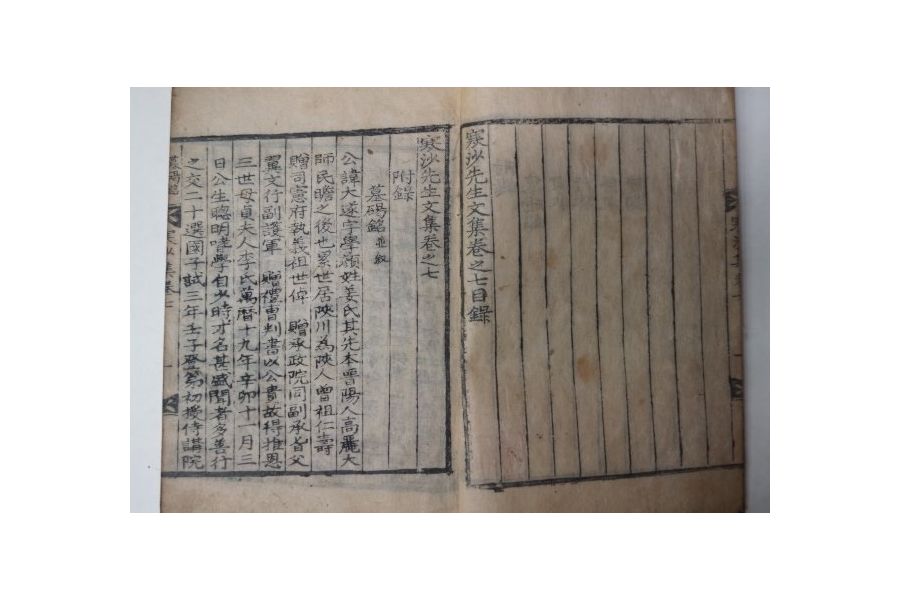 寒沙先生文集卷之七目錄
寒沙先生文集卷之七
附錄
墓碣銘 並叙
公諱大遂字學顔姓姜氏其先本晉陽人高麗大
師民瞻之後也累世居陜川為陜人曾祖仁壽
贈司憲府執義祖世倬 贈承政院同副承旨父
翼文行副護軍 贈禮曹判書以公貴故得推恩
三世母貞夫人李氏萬曆十九年辛卯十一月三
日公生聰明嗜學自少時才名甚盛聞者多善行
之交二十選國子試三年壬子登第初授侍講院
墓碣銘
寒沙集卷七